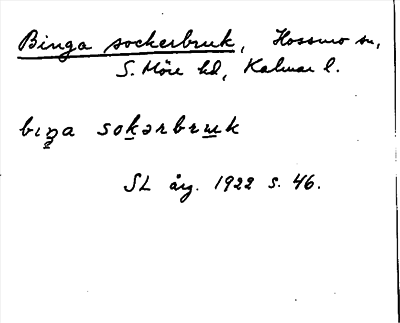 Binga sockerbruk, Hossmo sn,
S. Möre hd, Kalmar l.
bıŋa sokərbruk
SL årg. 1922 s. 46.